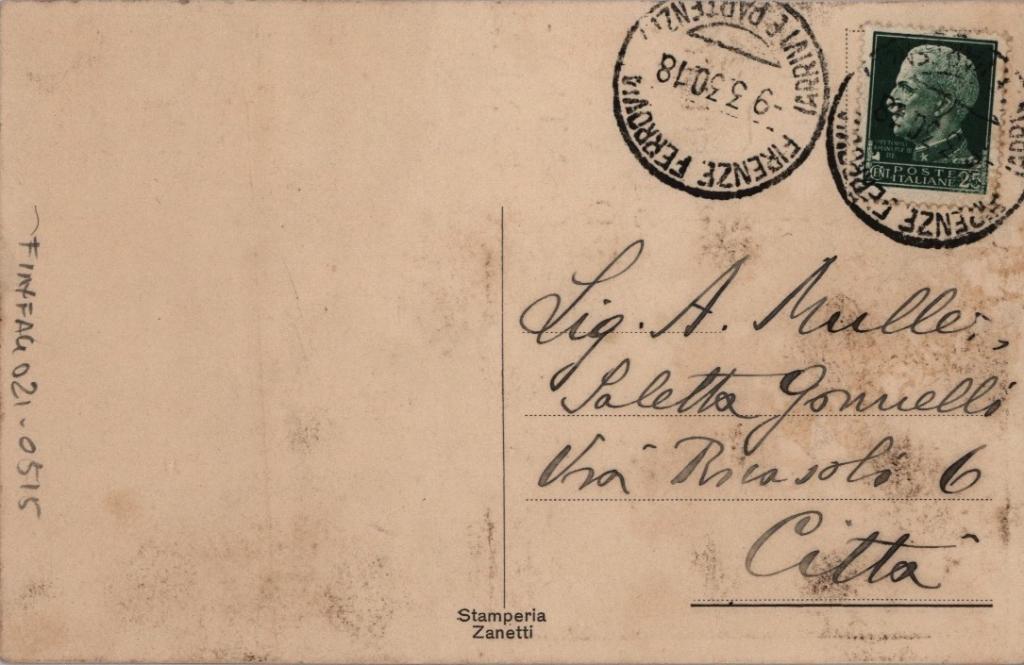 FIRENZE FERROVIA
(ARRIVI E PARTENZE)
-9.3.30.18
POSTE
ITALIANE
CENT 25
FIRENZE FERROVIA
Sig. A. Muller,
Saletta Gonnelli
Via Ricasoli 6
Città
Stamperia
Zanetti
FINFAG021-0515